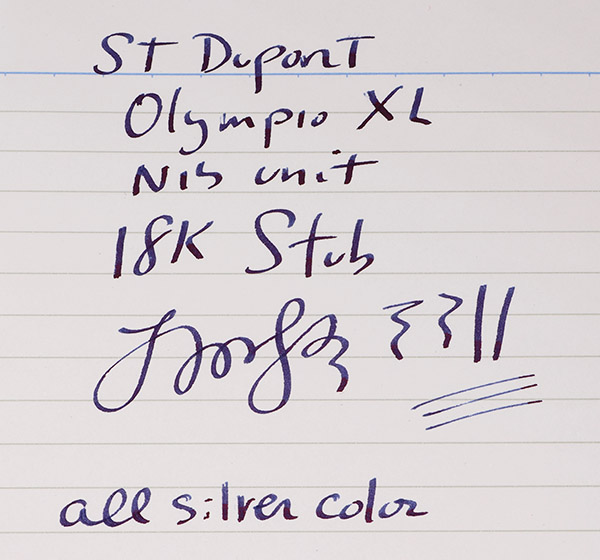 St Dupont
Olympio XL
Nib unit
18K Stub
all silver color